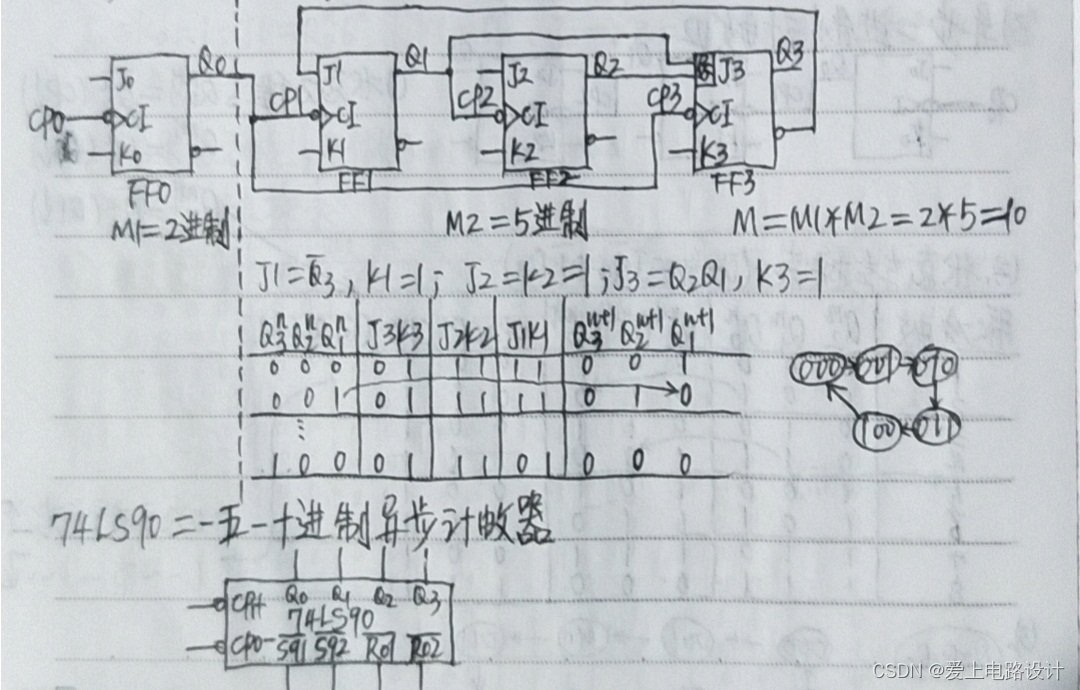 Q0 Q1 Q2 Q3
J0 J1 J2 & J3
CP0 CI CP1 CI CP2 CI CP3 CI
K0 K1 K2 K3
FF0 FF1 FF2 FF3
M1=2进制 M2=5进制 M=M1*M2=2*5=10
J1=Q̅3, K1=1; J2=K2=1; J3=Q2Q1, K3=1
Q3ⁿ Q2ⁿ Q1ⁿ J3K3 J2K2 J1K1 Q3ⁿ⁺¹ Q2ⁿ⁺¹ Q1ⁿ⁺¹
0 0 0 0 1 1 1 1 1 0 0 1
0 0 1 0 1 1 1 1 1 0 1 → 0
⋮
1 0 0 0 1 1 1 0 1 0 0 0
000 001 010
100 011
74LS90 二-五-十进制异步计数器
CP1 Q0 Q1 Q2 Q3
74LS90
CP0 S̅9̅1̅ S̅9̅2̅ R̅0̅1̅ R̅0̅2̅
CSDN @爱上电路设计